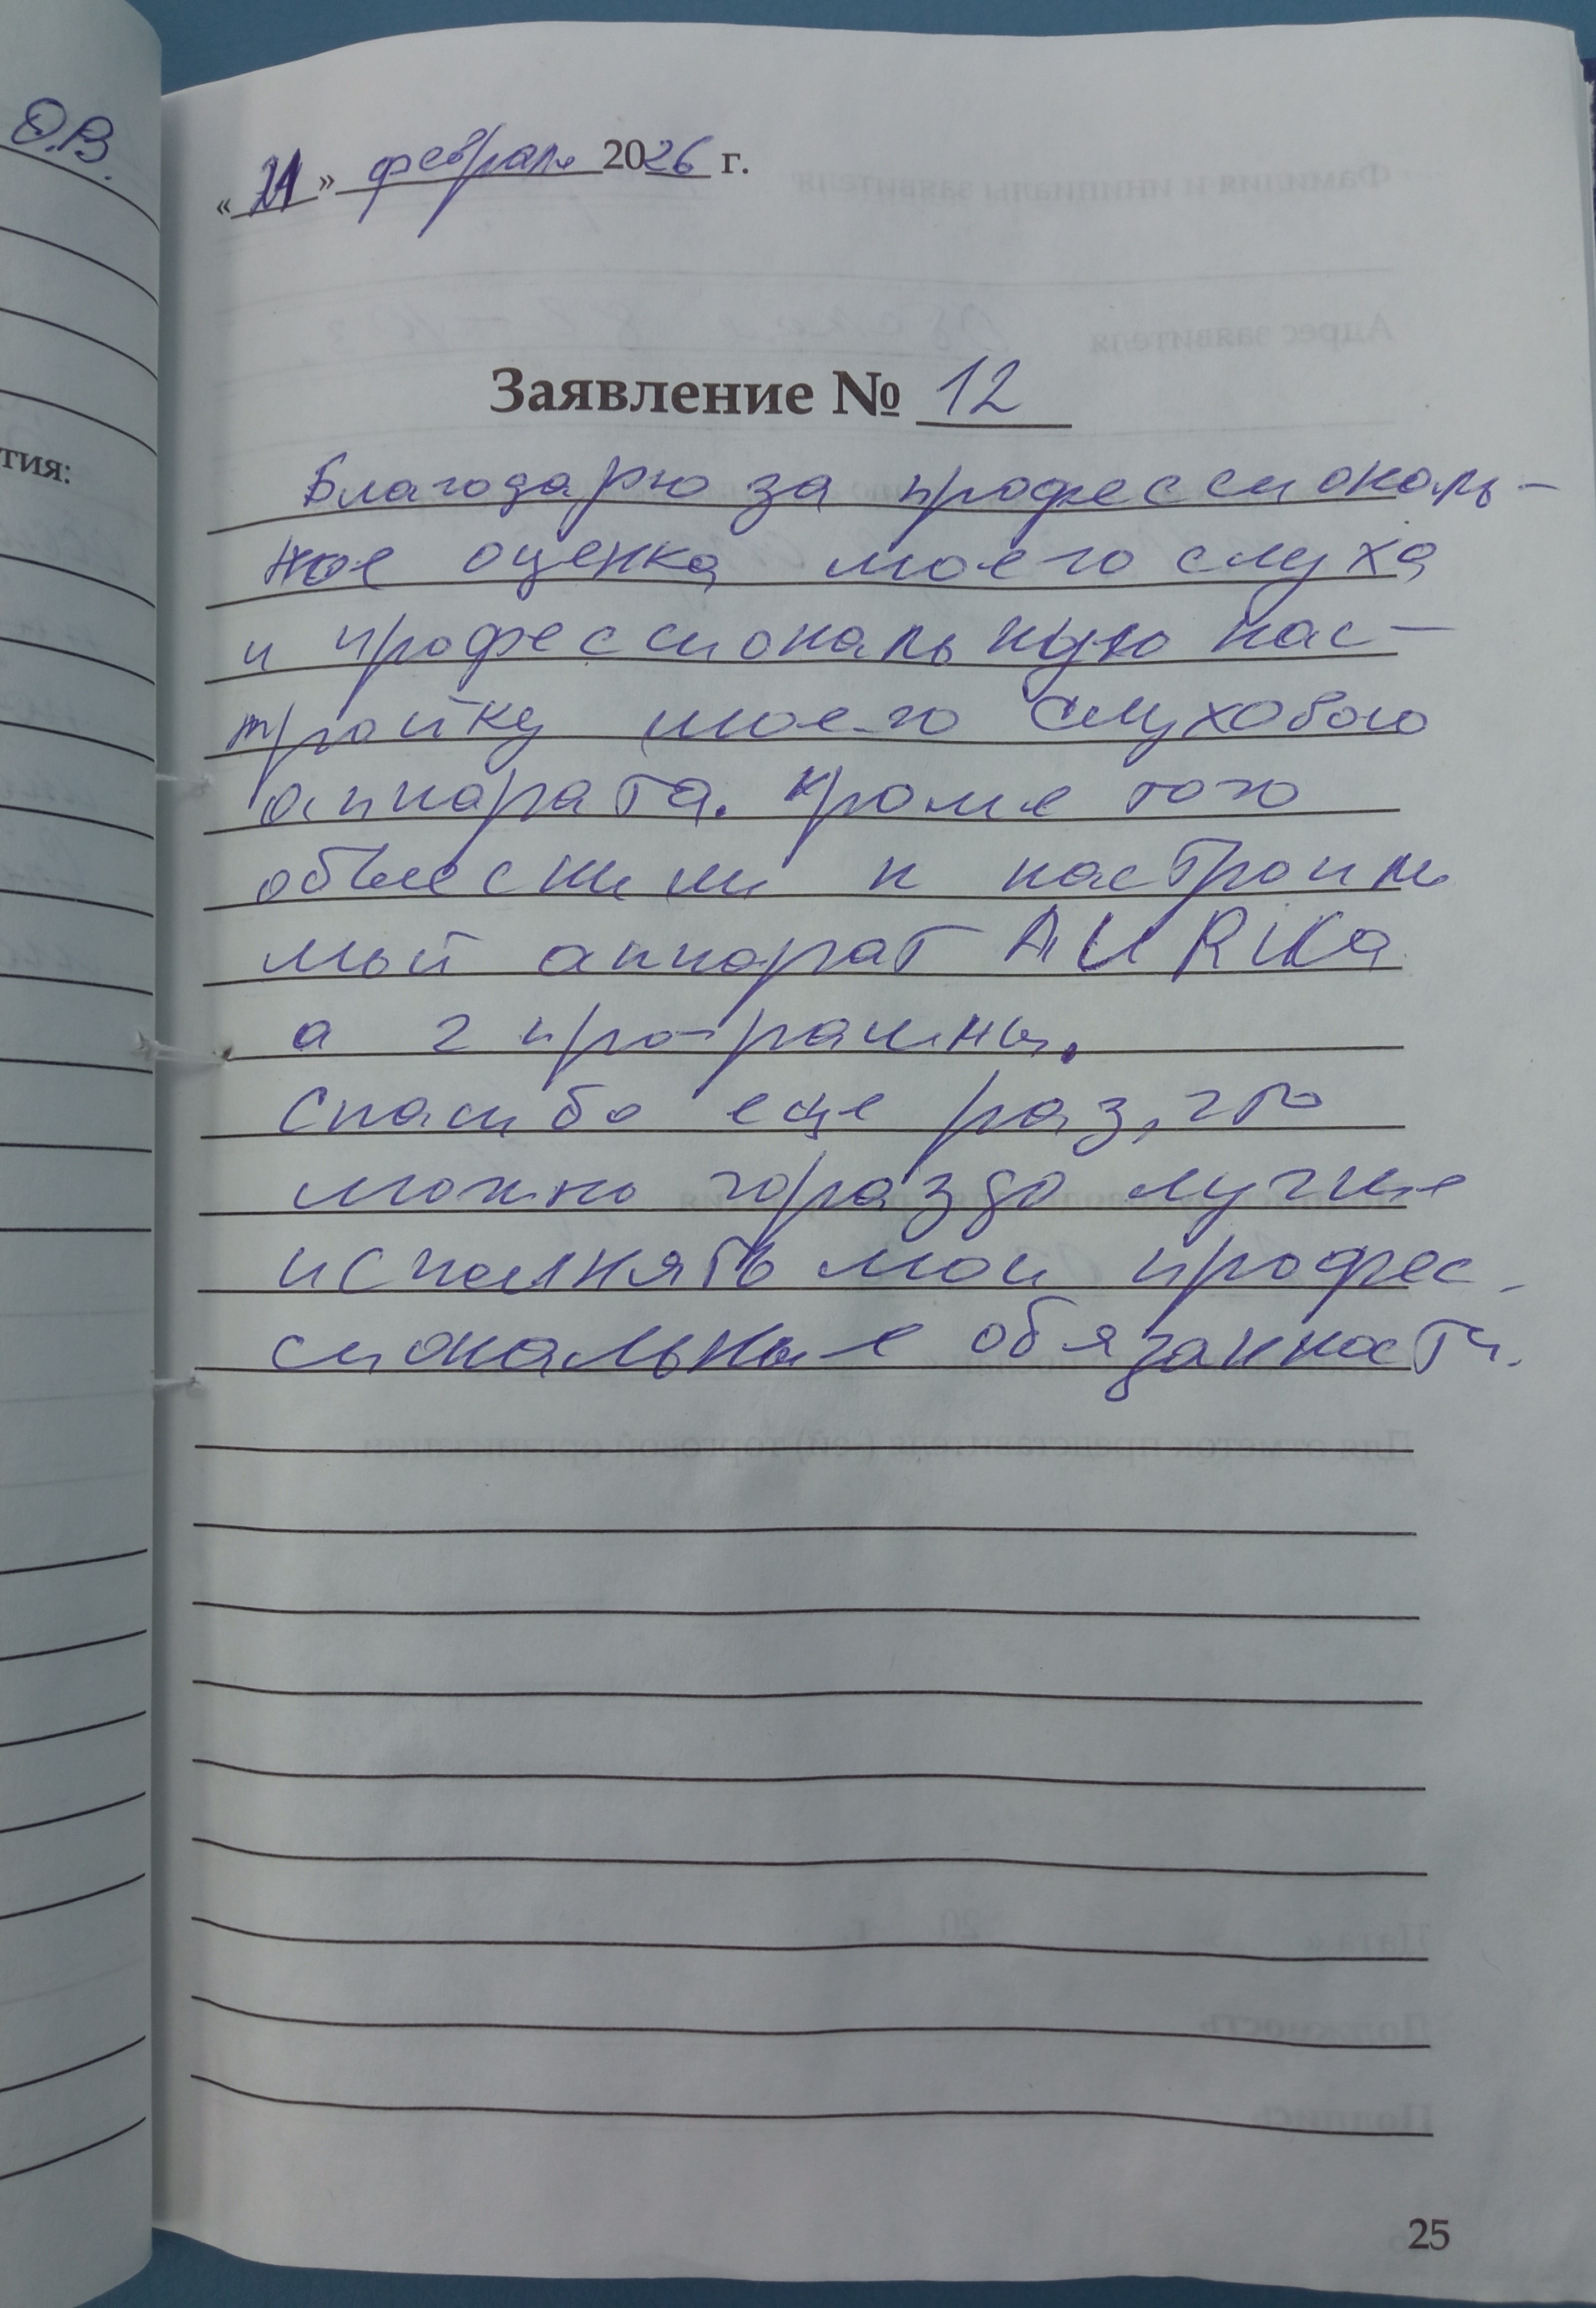 О.В.
тия:
«21» февраля 2026 г.
Заявление № 12
Благодарю за профессиональ-
ное оценка моего слуха
и профессиональную нас-
тройку моего слухового
аппарата. Кроме того
объяснили и настроили
мой аппарат AURICa
а 2 программы.
Спасибо еще раз, что
можно гораздо лучше
исполнять мои профес-
сиональные обязанности.
25